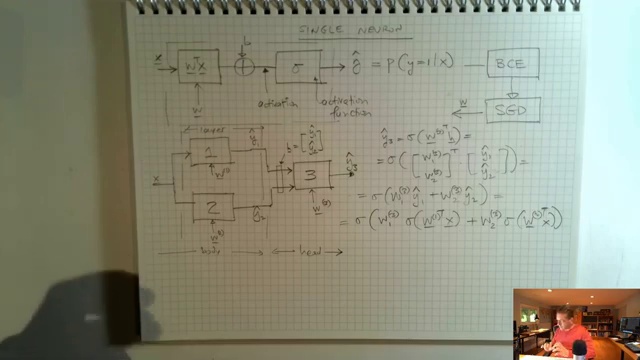 SINGLE NEURON
x wᵀx b σ ŷ = p(y=1/x) BCE
w
activation activation function
w SGD
layer ŷ₁
b = [ŷ₁ ŷ₂]
1 w⁽¹⁾
x
2 w⁽²⁾
ŷ₂
3 w⁽³⁾
ŷ₃
body head
ŷ₃ = σ(w⁽³⁾ᵀ h) =
= σ([w₁⁽³⁾ w₂⁽³⁾]ᵀ [ŷ₁ ŷ₂]) =
= σ(w₁⁽³⁾ ŷ₁ + w₂⁽³⁾ ŷ₂) =
= σ(w₁⁽³⁾ σ(w⁽¹⁾ᵀx) + w₂⁽³⁾ σ(w⁽²⁾ᵀx))